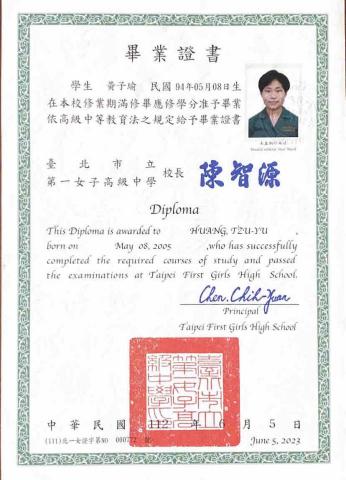 畢業證書
學生 黃子瑜 民國94年05月08日生
在本校修業期滿修畢應修學分准予畢業
依高級中等教育法之規定給予畢業證書
臺北市立
第一女子高級中學 校長 陳智源
Diploma
This Diploma is awarded to HUANG, TZU-YU ,
born on May 08, 2005 ,who has successfully
completed the required courses of study and passed
the examinations at Taipei First Girls High School.
Chen, Chih-Yuan
Principal
Taipei First Girls High School
中華民國 112 年 6 月 5 日
(111)北一女證字第NO 000772 號
June 5, 2023